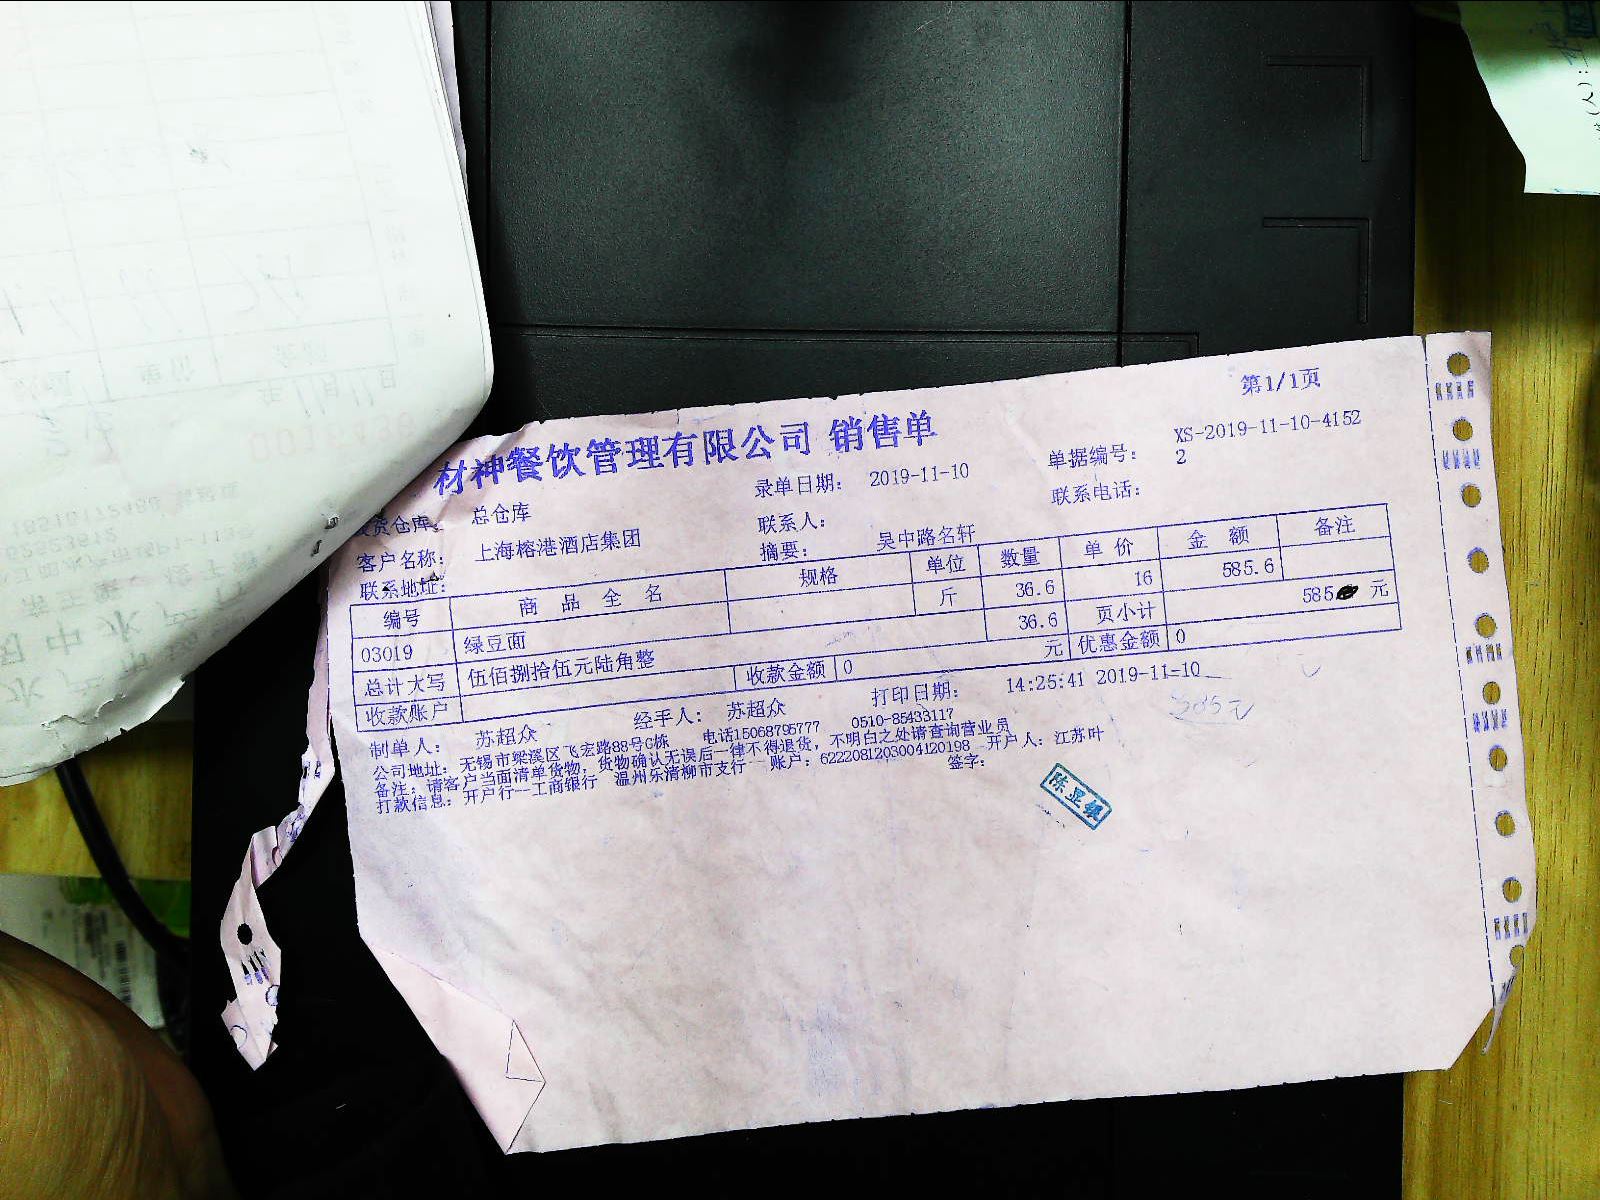 第1/1页
材神餐饮管理有限公司 销售单
XS-2019-11-10-4152
货仓库： 总仓库 录单日期： 2019-11-10 单据编号： 2
客户名称： 上海榕港酒店集团 联系人： 联系电话：
联系地址： 摘要： 吴中路名轩
编号 商品全名 规格 单位 数量 单价 金额 备注
03019 绿豆面 斤 36.6 16 585.6
36.6 页小计 585 元
总计大写 伍佰捌拾伍元陆角整 收款金额 0 元 优惠金额 0
收款账户
制单人： 苏超众 经手人： 苏超众 打印日期： 14:25:41 2019-11-10
585元
公司地址：无锡市梁溪区飞宏路88号C栋 电话15068795777 0510-85433117
备注：请客户当面清单货物，货物确认无误后一律不得退货，不明白之处请查询营业员
打款信息：开户行--工商银行 温州乐清柳市支行 账户：6222081203004120198 开户人：江苏叶
签字：
陈显银